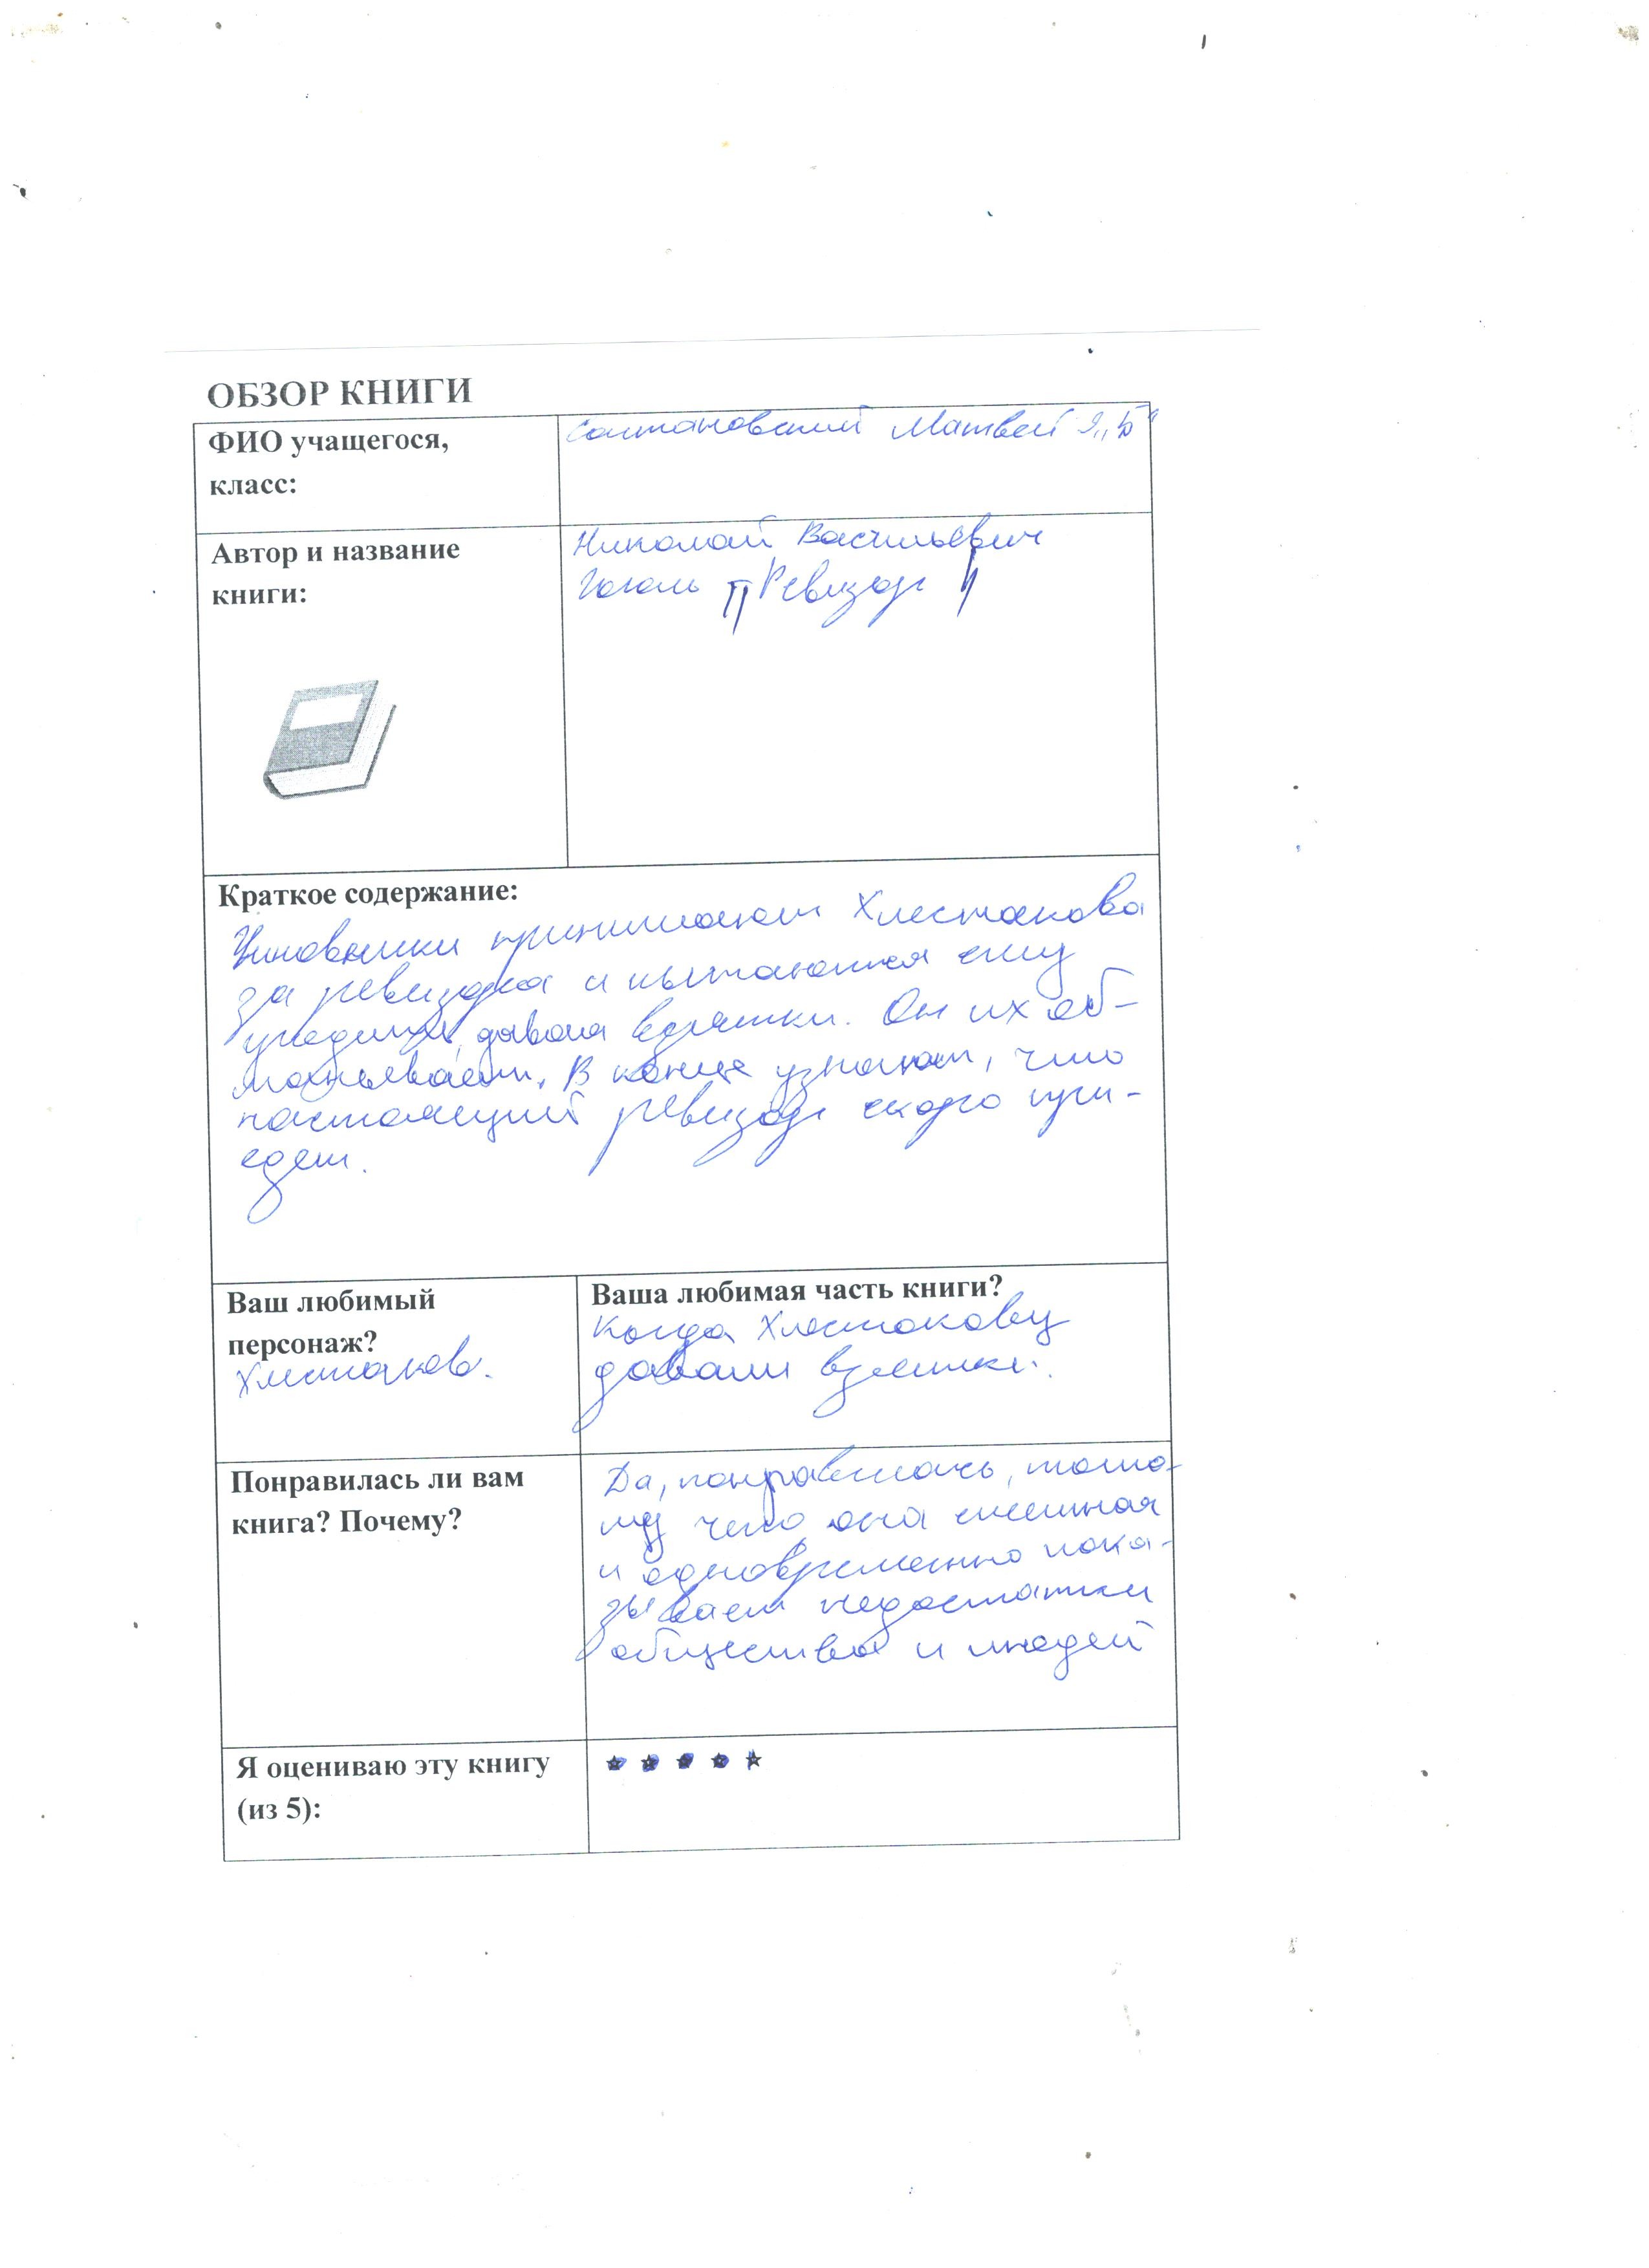 ОБЗОР КНИГИ
ФИО учащегося,
класс:
Солтановский Матвей 9 „Б"
Автор и название
книги:
Николай Васильевич
Гоголь "Ревизор"
Краткое содержание:
Чиновники принимают Хлестакова
за ревизора и пытаются ему
угодить, давая взятки. Он их об-
манывает. В конце узнают, что
настоящий ревизор скоро при-
едет.
Ваш любимый
персонаж?
Хлестаков.
Ваша любимая часть книги?
Когда Хлестакову
давали взятки.
Понравилась ли вам
книга? Почему?
Да, понравилась, пото-
му что она смешная
и одновременно пока-
зывает недостатки
общества и людей
Я оцениваю эту книгу
(из 5):